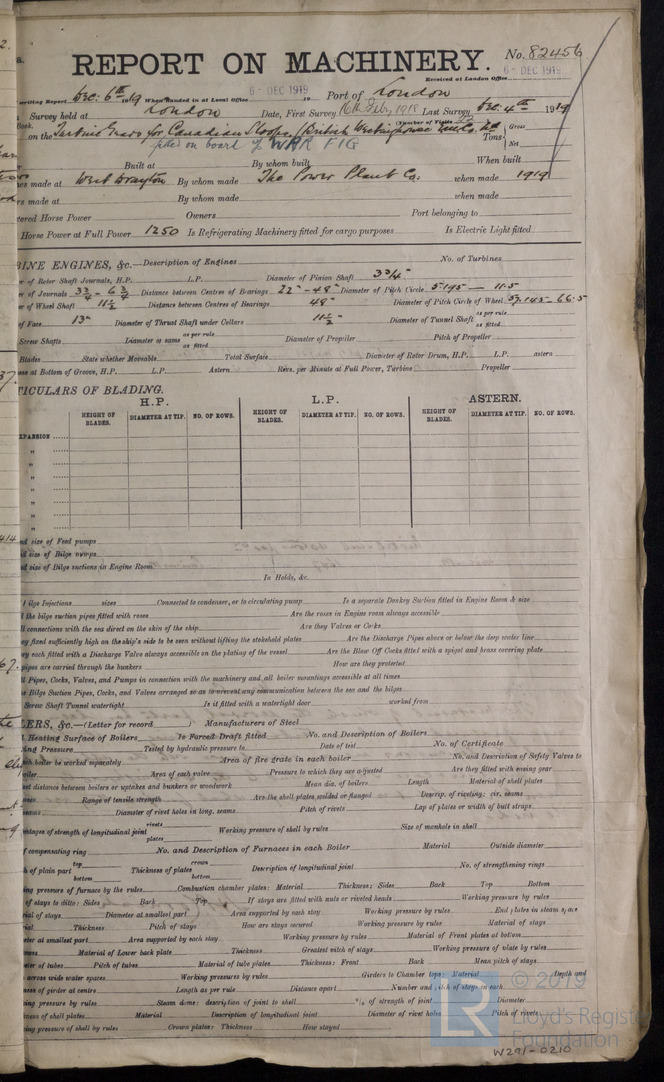 REPORT ON MACHINERY. No. 82456
Received at London Office 6 - DEC 1919
writing Report Dec. 6th 1919 When handed in at Local Office 6 - DEC 1919 19 Port of London
Survey held at London Date, First Survey 16th Feb, 1918 Last Survey Dec. 4th 1919
(Number of Visits
on the Turbine Gears for Canadian Sloops (British Westinghouse Gross
fitted on board of WAR FIG Tons Net
Built at By whom built When built
made at West Drayton By whom made The Power Plant Co. when made 1919
made at By whom made when made
Horse Power Owners Port belonging to
Horse Power at Full Power 1250 Is Refrigerating Machinery fitted for cargo purposes Is Electric Light fitted
BINE ENGINES, &c.—Description of Engines No. of Turbines
of Rotor Shaft Journals, H.P. L.P. Diameter of Pinion Shaft 3 3/4"
of Journals 3 3/4 - 6 3/4 Distance between Centres of Bearings 22" - 48" Diameter of Pitch Circle 5.195 — 11.5
of Wheel Shaft 11 1/2 Distance between Centres of Bearings 48" Diameter of Pitch Circle of Wheel 57.145 - 66.5
of Face 13" Diameter of Thrust Shaft under Collars 11 1/2" Diameter of Tunnel Shaft as per rule as fitted
Screw Shafts Diameter of same as per rule as fitted Diameter of Propeller Pitch of Propeller
Blades State whether Moveable Total Surface Diameter of Rotor Drum, H.P. L.P. astern
at Bottom of Groove, H.P. L.P. Astern Revs. per Minute at Full Power, Turbine Propeller
TICULARS OF BLADING.
H.P. L.P. ASTERN.
HEIGHT OF BLADES. DIAMETER AT TIP. NO. OF ROWS. HEIGHT OF BLADES. DIAMETER AT TIP. NO. OF ROWS. HEIGHT OF BLADES. DIAMETER AT TIP. NO. OF ROWS.
XPANSION
"
"
"
"
"
"
"
size of Feed pumps
size of Bilge pumps
size of Bilge suctions in Engine Room
In Holds, &c.
Bilge Injections sizes Connected to condenser, or to circulating pump Is a separate Donkey Suction fitted in Engine Room & size
the bilge suction pipes fitted with roses Are the roses in Engine room always accessible
connections with the sea direct on the skin of the ship Are they Valves or Cocks
fixed sufficiently high on the ship's side to be seen without lifting the stokehold plates Are the Discharge Pipes above or below the deep water line
each fitted with a Discharge Valve always accessible on the plating of the vessel Are the Blow Off Cocks fitted with a spigot and brass covering plate
pipes are carried through the bunkers How are they protected
Pipes, Cocks, Valves, and Pumps in connection with the machinery and all boiler mountings accessible at all times
Bilge Suction Pipes, Cocks, and Valves arranged so as to prevent any communication between the sea and the bilges
Screw Shaft Tunnel watertight Is it fitted with a watertight door worked from
LERS, &c.—(Letter for record ) Manufacturers of Steel
Heating Surface of Boilers Is Forced Draft fitted No. and Description of Boilers
Pressure Tested by hydraulic pressure to Date of test No. of Certificate
each boiler be worked separately Area of fire grate in each boiler No. and Description of Safety Valves to
boiler Area of each valve Pressure to which they are adjusted Are they fitted with easing gear
distance between boilers or uptakes and bunkers or woodwork Mean dia. of boilers Length Material of shell plates
Range of tensile strength Are the shell plates welded or flanged Descrip. of riveting: cir. seams
seams Diameter of rivet holes in long. seams Pitch of rivets Lap of plates or width of butt straps
of strength of longitudinal joint rivets plates Working pressure of shell by rules Size of manhole in shell
of compensating ring No. and Description of Furnaces in each Boiler Material Outside diameter
of plain part top bottom Thickness of plates crown bottom Description of longitudinal joint No. of strengthening rings
pressure of furnace by the rules Combustion chamber plates: Material Thickness: Sides Back Top Bottom
of stays to ditto: Sides Back Top If stays are fitted with nuts or riveted heads Working pressure by rules
of stays Diameter at smallest part Area supported by each stay Working pressure by rules End plates in steam space
Thickness Pitch of stays How are stays secured Working pressure by rules Material of stays
at smallest part Area supported by each stay Working pressure by rules Material of Front plates at bottom
Material of Lower back plate Thickness Greatest pitch of stays Working pressure of plate by rules
of tubes Pitch of tubes Material of tube plates Thickness: Front Back Mean pitch of stays
across wide water spaces Working pressures by rules Girders to Chamber tops: Material Depth and
of girder at centre Length as per rule Distance apart Number and pitch of stays in each
pressure by rules Steam dome: description of joint to shell % of strength of joint Diameter
of shell plates Material Description of longitudinal joint Diameter of rivet holes Pitch of rivets
pressure of shell by rules Crown plates: Thickness How stayed
© 2019
Lloyd's Register
Foundation
W291-0210